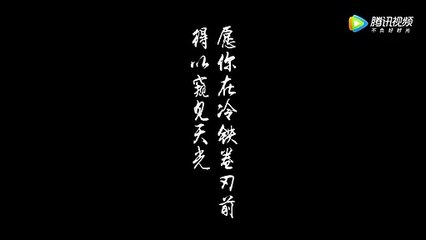 愿你在冷铁卷刃前
得以窥见天光
腾讯视频
不负好时光